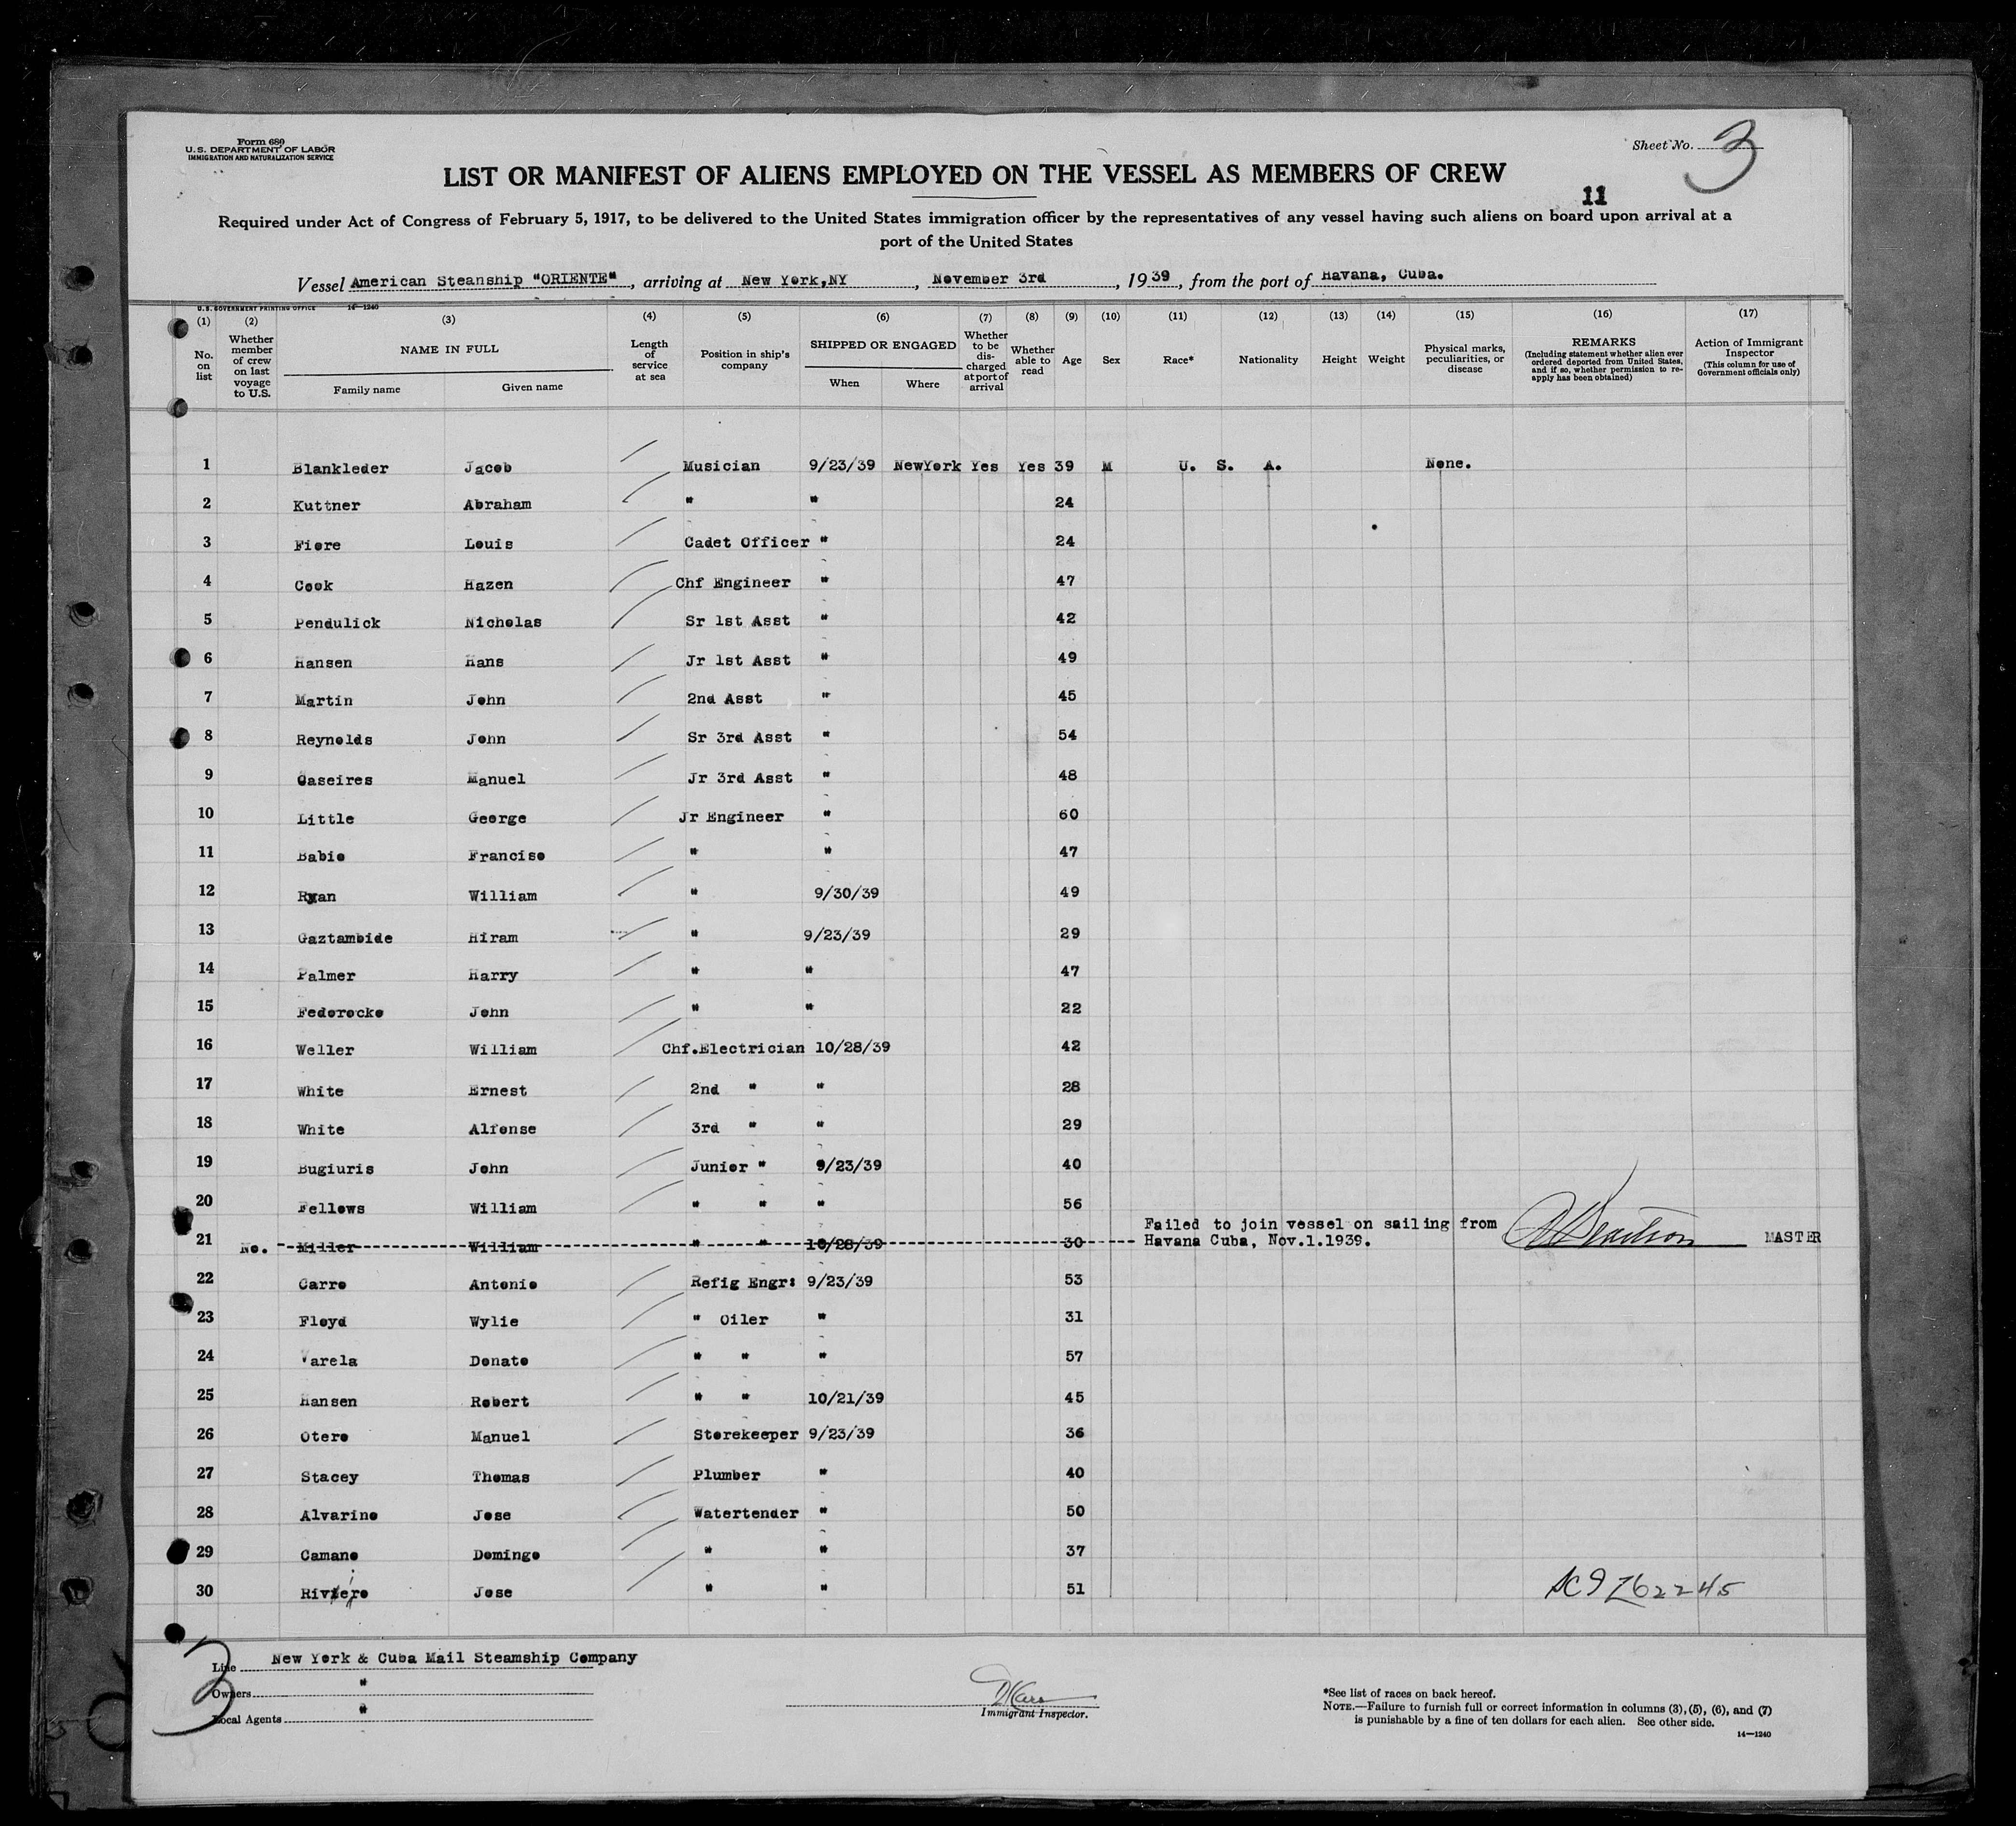 Form 689
U. S. DEPARTMENT OF LABOR
IMMIGRATION AND NATURALIZATION SERVICE
Sheet No. 3
LIST OR MANIFEST OF ALIENS EMPLOYED ON THE VESSEL AS MEMBERS OF CREW
11
Required under Act of Congress of February 5, 1917, to be delivered to the United States immigration officer by the representatives of any vessel having such aliens on board upon arrival at a
port of the United States
Vessel American Steanship "ORIENTE", arriving at New York,NY, November 3rd, 1939, from the port of Havana, Cuba.
U. S. GOVERNMENT PRINTING OFFICE 14—1240
(1) (2) (3) (4) (5) (6) (7) (8) (9) (10) (11) (12) (13) (14) (15) (16) (17)
No. on list
Whether member of crew on last voyage to U.S.
NAME IN FULL
Family name Given name
Length of service at sea
Position in ship's company
SHIPPED OR ENGAGED
When Where
Whether to be discharged at port of arrival
Whether able to read
Age Sex Race* Nationality Height Weight
Physical marks, peculiarities, or disease
REMARKS
(Including statement whether alien ever ordered deported from United States, and if so, whether permission to reapply has been obtained)
Action of Immigrant Inspector
(This column for use of Government officials only)
1 Blankleder Jacob Musician 9/23/39 NewYork Yes Yes 39 M U. S. A. None.
2 Kuttner Abraham " " 24
3 Fiore Louis Cadet Officer " 24
4 Cook Hazen Chf Engineer " 47
5 Pendulick Nicholas Sr 1st Asst " 42
6 Hansen Hans Jr 1st Asst " 49
7 Martin John 2nd Asst " 45
8 Reynolds John Sr 3rd Asst " 54
9 Caseires Manuel Jr 3rd Asst " 48
10 Little George Jr Engineer " 60
11 Babio Franciso " " 47
12 Ryan William " 9/30/39 49
13 Gaztambide Hiram " 9/23/39 29
14 Palmer Harry " " 47
15 Federocko John " " 22
16 Weller William Chf.Electrician 10/28/39 42
17 White Ernest 2nd " " 28
18 White Alfonse 3rd " " 29
19 Bugiuris John Junior " 9/23/39 40
20 Fellows William " " " 56
21 No. Miller William " " 10/28/39 30 Failed to join vessel on sailing from
Havana Cuba, Nov.1.1939. MASTER
22 Carro Antonio Refig Engr: 9/23/39 53
23 Floyd Wylie " Oiler " 31
24 Varela Donato " " " 57
25 Hansen Robert " " 10/21/39 45
26 Otero Manuel Storekeeper 9/23/39 36
27 Stacey Thomas Plumber " 40
28 Alvarino Jose Watertender " 50
29 Camano Domingo " " 37
30 Riviero Jose " " 51
3
Line New York & Cuba Mail Steamship Company
Owners "
Local Agents "
Immigrant Inspector.
*See list of races on back hereof.
NOTE.—Failure to furnish full or correct information in columns (3), (5), (6), and (7)
is punishable by a fine of ten dollars for each alien. See other side.
14—1240